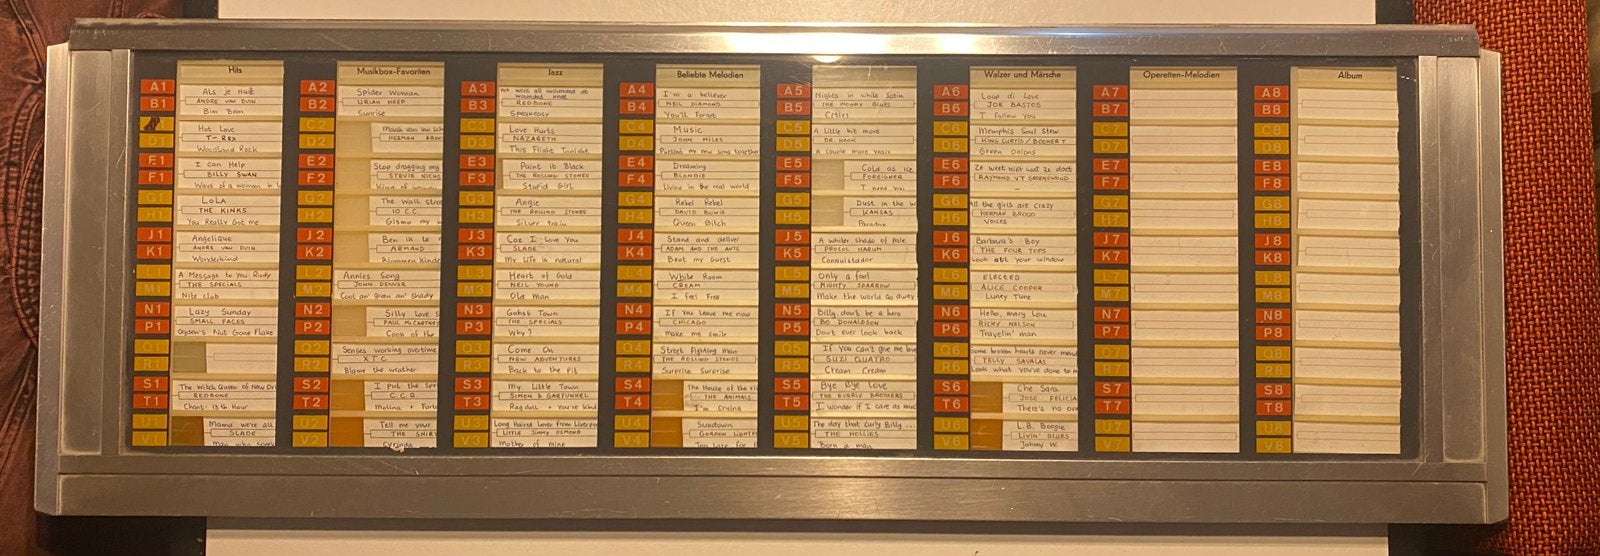 Hits
A1
B1
Als je huilt
ANDRE VAN DUIN
Bim Bam
D1
Hot Love
T-REX
Woodland Rock
E1
F1
I can Help
BILLY SWAN
Wave of a woman in l
G1
H1
LOLA
THE KINKS
You Really Got me
J1
K1
Angelique
ANDRE VAN DUIN
Wonderkind
L1
M1
A Message to You Rudy
THE SPECIALS
Nite club
N1
P1
Lazy Sunday
SMALL FACES
Ogden's Nut Gone Flake
Q1
R1
S1
T1
The Witch Queen of New Or
REDBONE
Chant: 13th Hour
U1
V1
Mama we're all
SLADE
Man who speek
Musikbox-Favoriten
A2
B2
Spider Woman
URIAH HEEP
Sunrise
C2
D2
Maak van uw sch
HERMAN BROO
E2
F2
Stop dragging my
STEVIE NICKS
G2
H2
The Wall stree
10 C.C.
Gismo my w
J2
K2
Ben ik te
ARMAND
Blommen kinde
L2
M2
Annies Song
JOHN DENVER
Cool an' green an' shady
N2
P2
Silly Love S
PAUL McCARTNEY
Cook of the
Q2
R2
Senses working overtime
XTC
Blame the weather
S2
T2
I put the Spe
C.C.R.
Molina + Fort
U2
V2
Tell me your
THE SHIR
Jazz
A3
B3
We were all wounded at
wounded knee
REDBONE
Speakeasy
C3
D3
Love Hurts
NAZARETH
This Flight Tonight
E3
F3
Paint it Black
THE ROLLING STONES
Stupid Girl
G3
H3
Angie
THE ROLLING STONES
Silver train
J3
K3
Coz I Love You
SLADE
My Life is natural
L3
M3
Heart of Gold
NEIL YOUNG
Old Man
N3
P3
Gohst Town
THE SPECIALS
Why?
Q3
R3
Come On
NEW ADVENTURES
Back to the Pit
S3
T3
My Little Town
SIMON & GARFUNKEL
Rag doll + You're kind
U3
V3
Long Haired Lover from Liverpo
LITTLE JIMMY OSMOND
Mother of mine
Beliebte Melodien
A4
B4
I'm a believer
NEIL DIAMOND
You'll Forget
C4
D4
Music
JOHN MILES
Putting my new song together
E4
F4
Dreaming
BLONDIE
Living in the real world
G4
H4
Rebel Rebel
DAVID BOWIE
Queen Bitch
J4
K4
Stand and deliver
ADAM AND THE ANTS
Beat my Guest
L4
M4
White Room
CREAM
I Feel Free
N4
P4
If You Leave me now
CHICAGO
Make me smile
Q4
R4
Street Fighting man
THE ROLLING STONES
Surprise Surprise
S4
T4
The House of the ri
THE ANIMALS
I'm Crying
U4
V4
Sundown
GORDON LIGHTF
Too late for
A5
B5
Nights in white Satin
THE MOODY BLUES
Cities
C5
D5
A Little bit more
DR. HOOK
A couple more years
E5
F5
Cold as ice
FOREIGNER
I need you
G5
H5
Dust in the w
KANSAS
Paradox
J5
K5
A whiter Shade of Pale
PROCOL HARUM
Conquistador
L5
M5
Only a fool
MIGHTY SPARROW
Make the world go away
N5
P5
Billy, don't be a hero
BO DONALDSON
Don't ever look back
Q5
R5
If You can't give me love
SUZI QUATRO
Cream Cream
S5
T5
Bye Bye Love
THE EVERLY BROTHERS
I wonder if I care as muc
U5
V5
The day that Curly Billy...
THE HOLLIES
Born a man
Walzer und Märsche
A6
B6
Loop di Love
JOE BASTOS
I follow you
C6
D6
Memphis Soul Stew
KING CURTIS / BOOKER T
Green Onions
E6
F6
Ze weet niet wat ze doet
RAYMOND V'T GROENEWOUD
G6
H6
All the girls are crazy
HERMAN BROOD
VOICES
J6
K6
Barbara's Boy
THE FOUR TOPS
Look out your window
L6
M6
ELECTED
ALICE COOPER
Luney Tune
N6
P6
Hello, mary Lou
RICKY NELSON
Travelin' man
Q6
R6
Some broken hearts never mend
TELLY SAVALAS
Look what you've done to m
S6
T6
Che Sara
JOSE FELICIA
There's no on
U6
V6
L.B. Boogie
LIVIN' BLUES
Johnny W.
Operetten-Melodien
A7
B7
C7
D7
E7
F7
G7
H7
J7
K7
L7
M7
N7
P7
Q7
R7
S7
T7
U7
V7
Album
A8
B8
C8
D8
E8
F8
G8
H8
J8
K8
L8
M8
N8
P8
Q8
R8
S8
T8
U8
V8